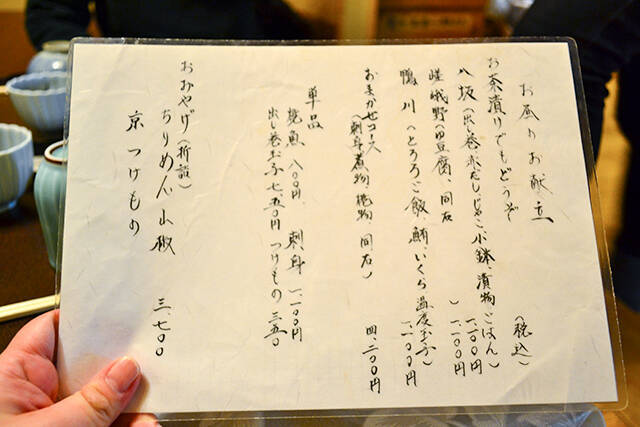 お昼のお献立
(税込)
お茶漬けでもどうぞ
八坂(出し巻、赤だし、じゃこ、小鉢、漬物、ごはん)
一、一〇〇円
嵯峨野(田豆腐、同右)
一、一〇〇円
鴨川(とろろご飯、鮪、いくら、温度玉子)
一、一〇〇円
おまかせコース
(刺身、煮物、焼物、同右)
四、二〇〇円
単品
焼魚 八〇〇円 刺身 一、一〇〇円
出し巻玉子 七五〇円 つけもの 三五〇
おみやげ(折詰)
ちりめん山椒
京つけもの
三、七〇〇